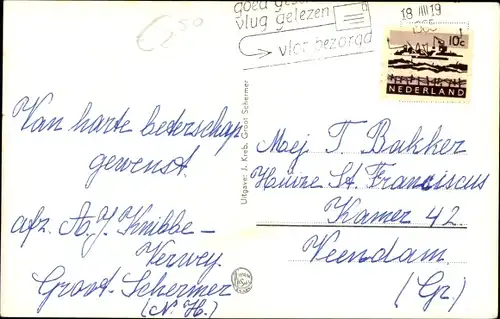 € 2 50
goed gesc
vlug gelezen
vlot bezorgd
18 III 19
1965
10c
NEDERLAND
Van harte beterschap
gewenst.
afz. A. J. Knibbe-
Verwey.
Groot-Schermer
(N. H.)
Uitgave: J. Kreb, Groot Schermer
Mej T. Bakker
Huize St. Franciscus
Kamer 42
Veendam.
(Gr.)